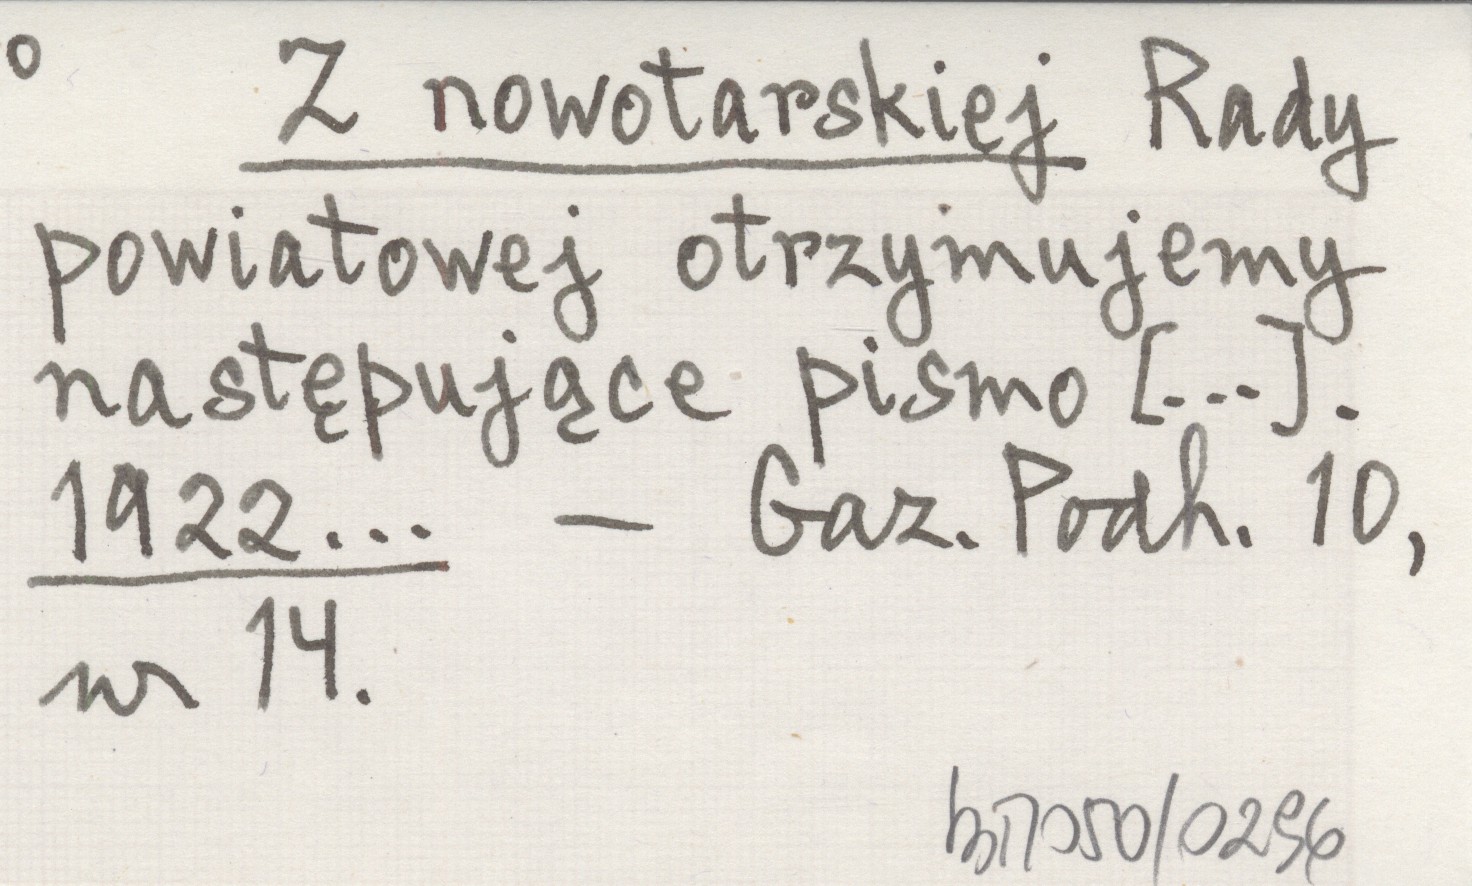 o Z nowotarskiej Rady
powiatowej otrzymujemy
następujące pismo [...].
1922... — Gaz. Podh. 10,
nr 14.